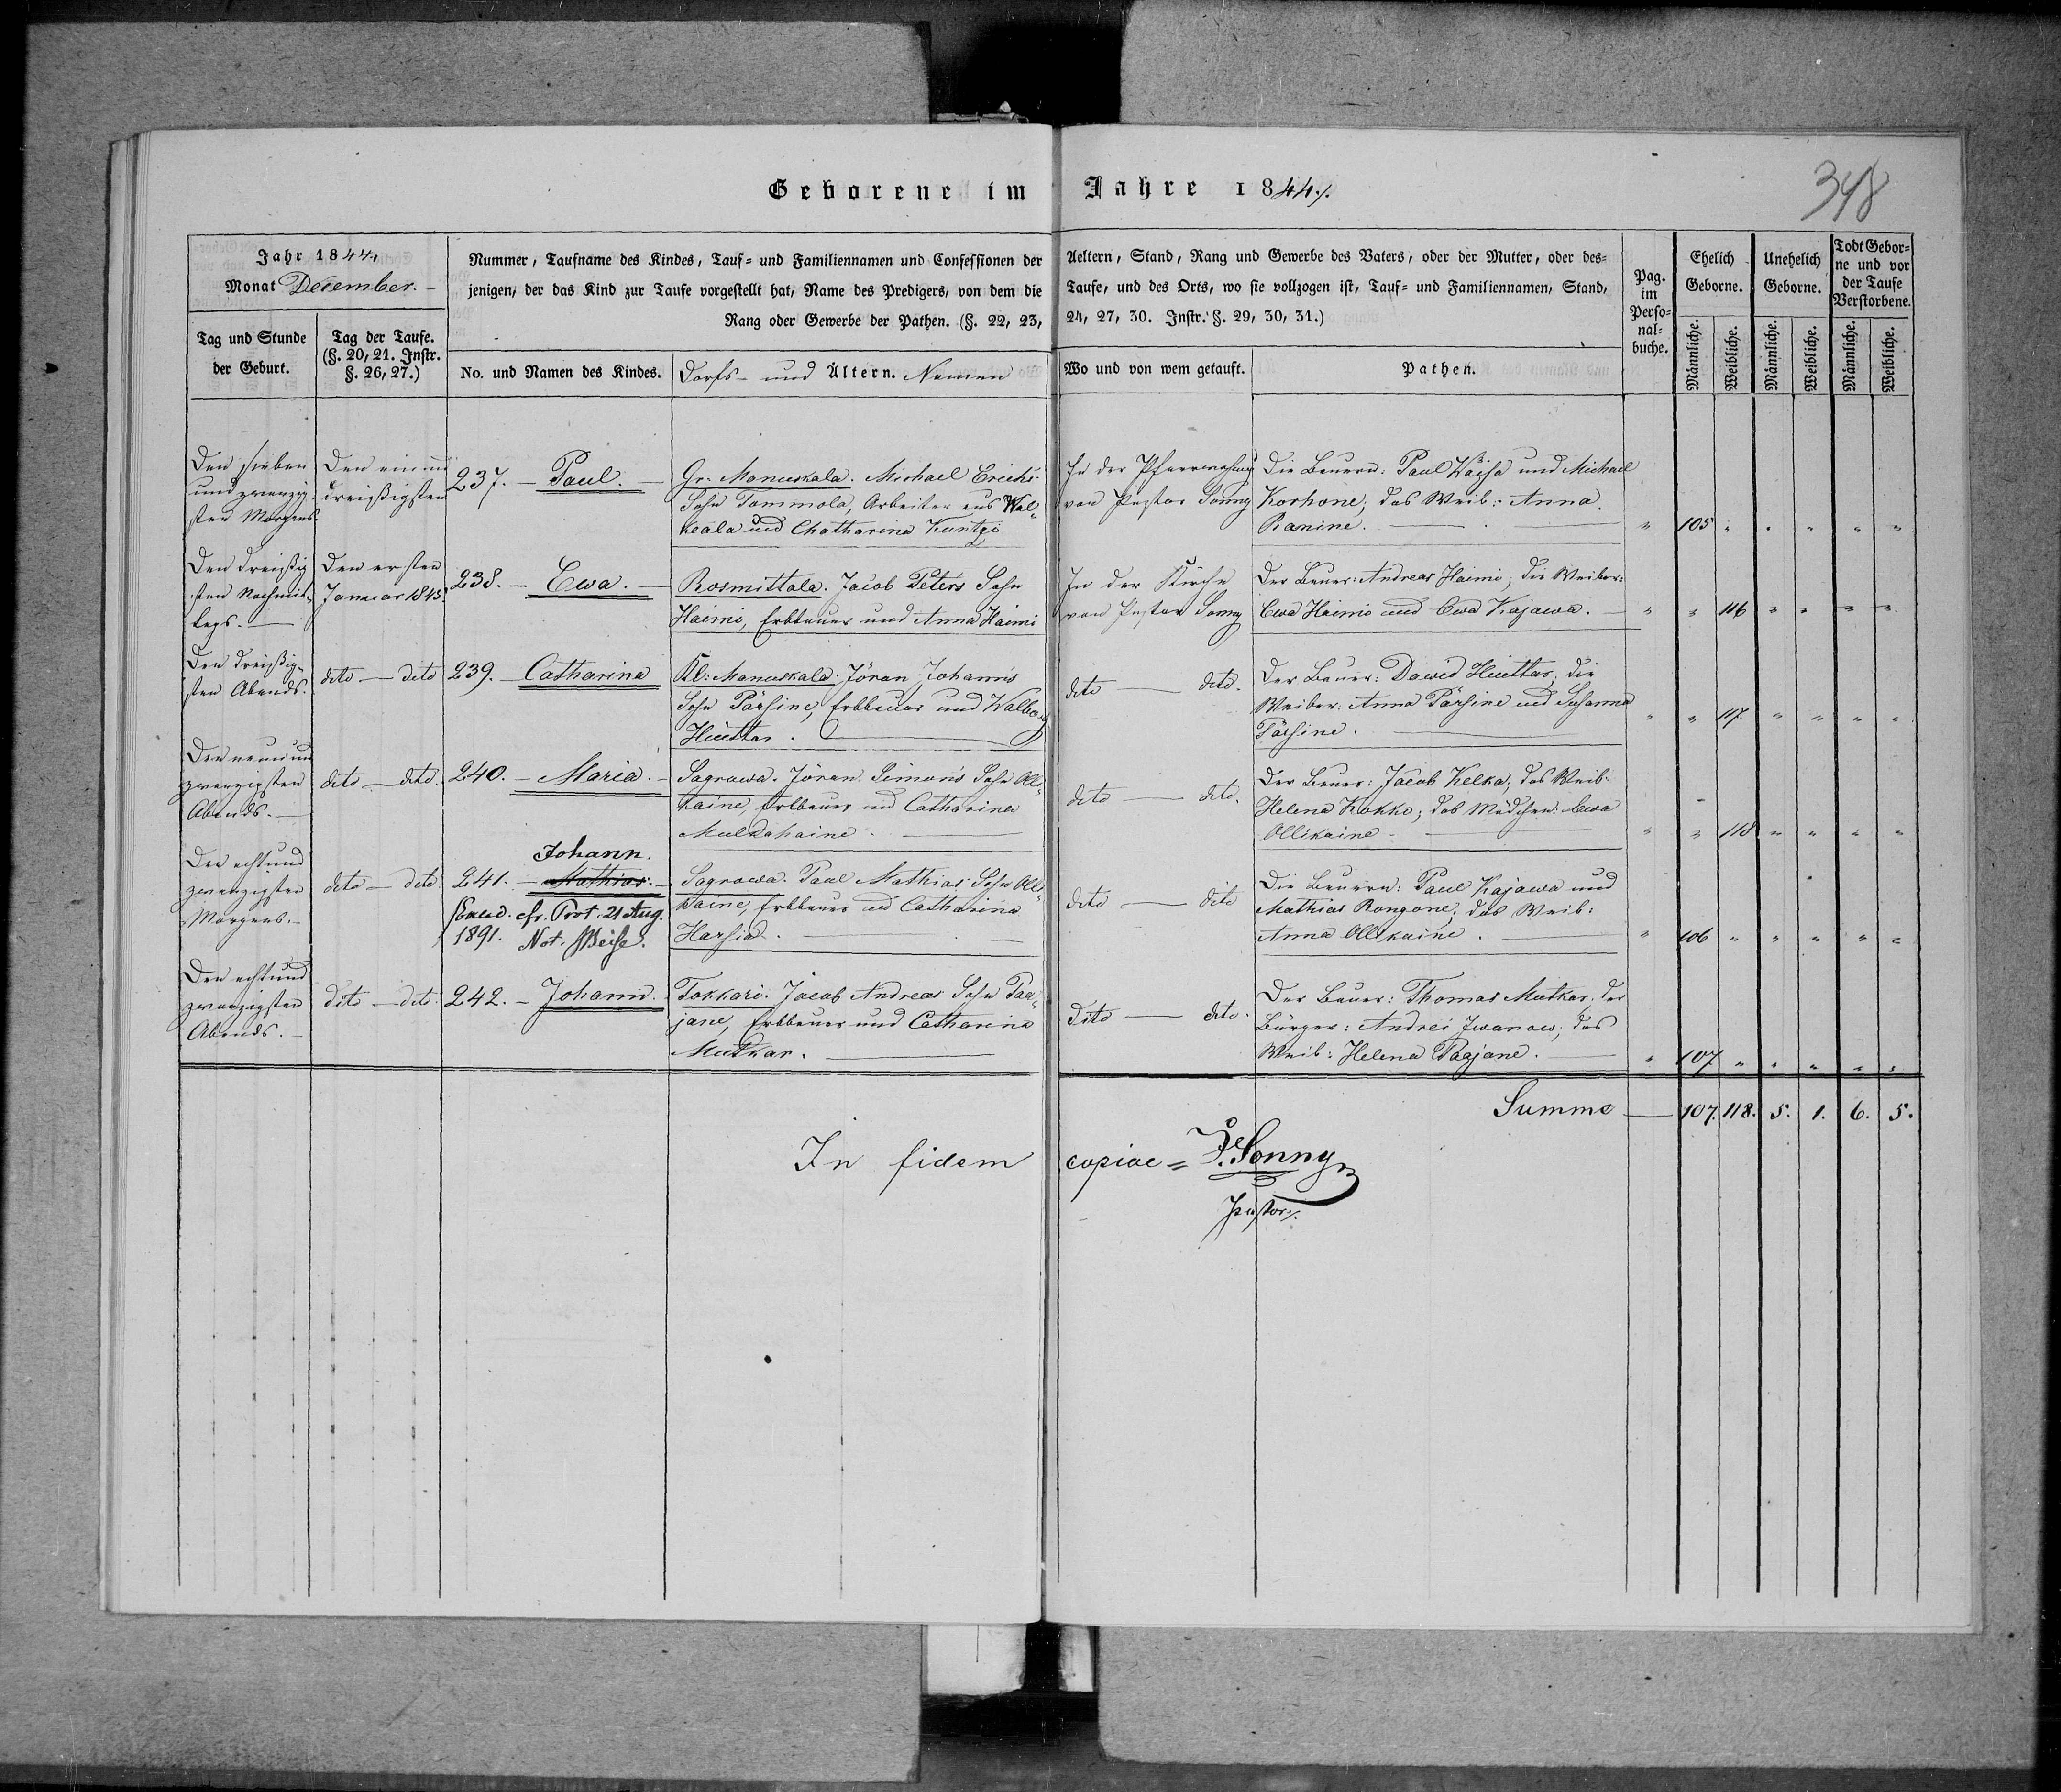 Geborene im Jahre 1844./.
348
Jahr 1844.
Monat December.
Nummer, Taufname des Kindes, Tauf- und Familiennamen und Confessionen der
jenigen, der das Kind zur Taufe vorgestellt hat, Name des Predigers, von dem die
Rang oder Gewerbe der Pathen. (§. 22, 23,
Tag und Stunde
der Geburt.
Tag der Taufe.
(§. 20, 21. Instr.
§. 26, 27.)
No. und Namen des Kindes.
Dorfs- und Ältern. Namen
Aeltern, Stand, Rang und Gewerbe des Vaters, oder der Mutter, oder des-
Taufe, und des Orts, wo sie vollzogen ist, Tauf- und Familiennamen, Stand,
24, 27, 30. Instr. §. 29, 30, 31.)
Wo und von wem getauft.
Pathen.
Pag.
im
Perso-
nal-
buche.
Ehelich
Geborne.
Unehelich
Geborne.
Todt Gebor-
ne und vor
der Taufe
Verstorbene.
Männliche.
Weibliche.
Männliche.
Weibliche.
Männliche.
Weibliche.
Den sieben
und zwanzig-
sten Morgens.
Den ein und
dreißigsten
237. - Paul. -
Gr. Manuskala. Michael Erichs
Sohn Tommola, Arbeiter aus Wal-
keala und Chatharina Kuntzi
In der Pfarrwohnung
von Pastor Sonny
Die Bauern: Paul Käisa und Michael
Korhone; das Weib: Anna
Ranine.
" 105 " " " " "
Den dreißig
sten Nachmit-
tags.
Den ersten
Januar 1845.
238. - Ewa. -
Rosmittala. Jacob Peters Sohn
Haimi, Erbbauer und Anna Haimi
In der Kirche
von Pastor Sonny
Der Bauer: Andreas Haimi; die Weiber:
Ewa Haimi und Ewa Kajawa.
" " 116 " " " "
Den dreißig-
sten Abends.
dito - dito
239. - Catharina
Kl: Manuskala. Jöran Johann's
Sohn Pärsine, Erbbauer und Walborg
Huttar.
dito - dito.
Der Bauer: Dawid Huttar; die
Weiber: Anna Pärsine und Susanna
Pärsine.
" " 117. " " " "
Den neun und
zwanzigsten
Abends.
dito - dito.
240. - Maria. -
Sagrowa. Jöran Simon's Sohn Olli-
kaine, Erbbauer und Catharina
Mulkahaine.
dito - dito.
Der Bauer: Jacob Kelka; das Weib:
Helena Kokko; das Mädchen: Ewa
Ollikaine
" " 118 " " " "
Den acht und
zwanzigsten
Morgens.
dito - dito.
Johann.
241. - Mathias. -
cfr. Prot. 21 Aug.
1891. Not.
Sagrowa. Paul Mathias Sohn Olli-
kaine, Erbbauer und Catharina
Harsia.
dito - dito
Die Bauern: Paul Kajawa und
Mathias Rongone; das Weib:
Anna Ollikaine.
" 106 " " " " "
Den acht und
zwanzigsten
Abends.
dito - dito.
242. - Johann.
Tokkari. Jacob Andreas Sohn Paa-
jane, Erbbauer und Catharina
Mutkar.
dito - dito.
Der Bauer: Thomas Mutkar; der
Bürger: Andrei Iwanow; das
Weib: Helena Pagjane.
" 107 " " " " "
Summe - 107. 118. 5. 1. 6. 5.
In fidem copiae = Sonny
Pastor./.